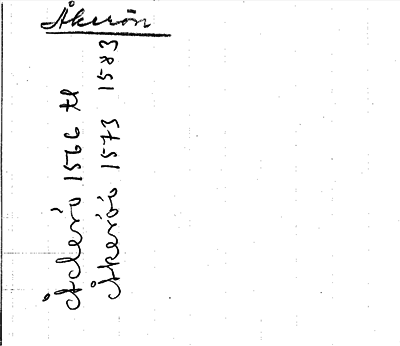 Åkerön
Åclerö 1566 tl
Åkeröö 1573 1583